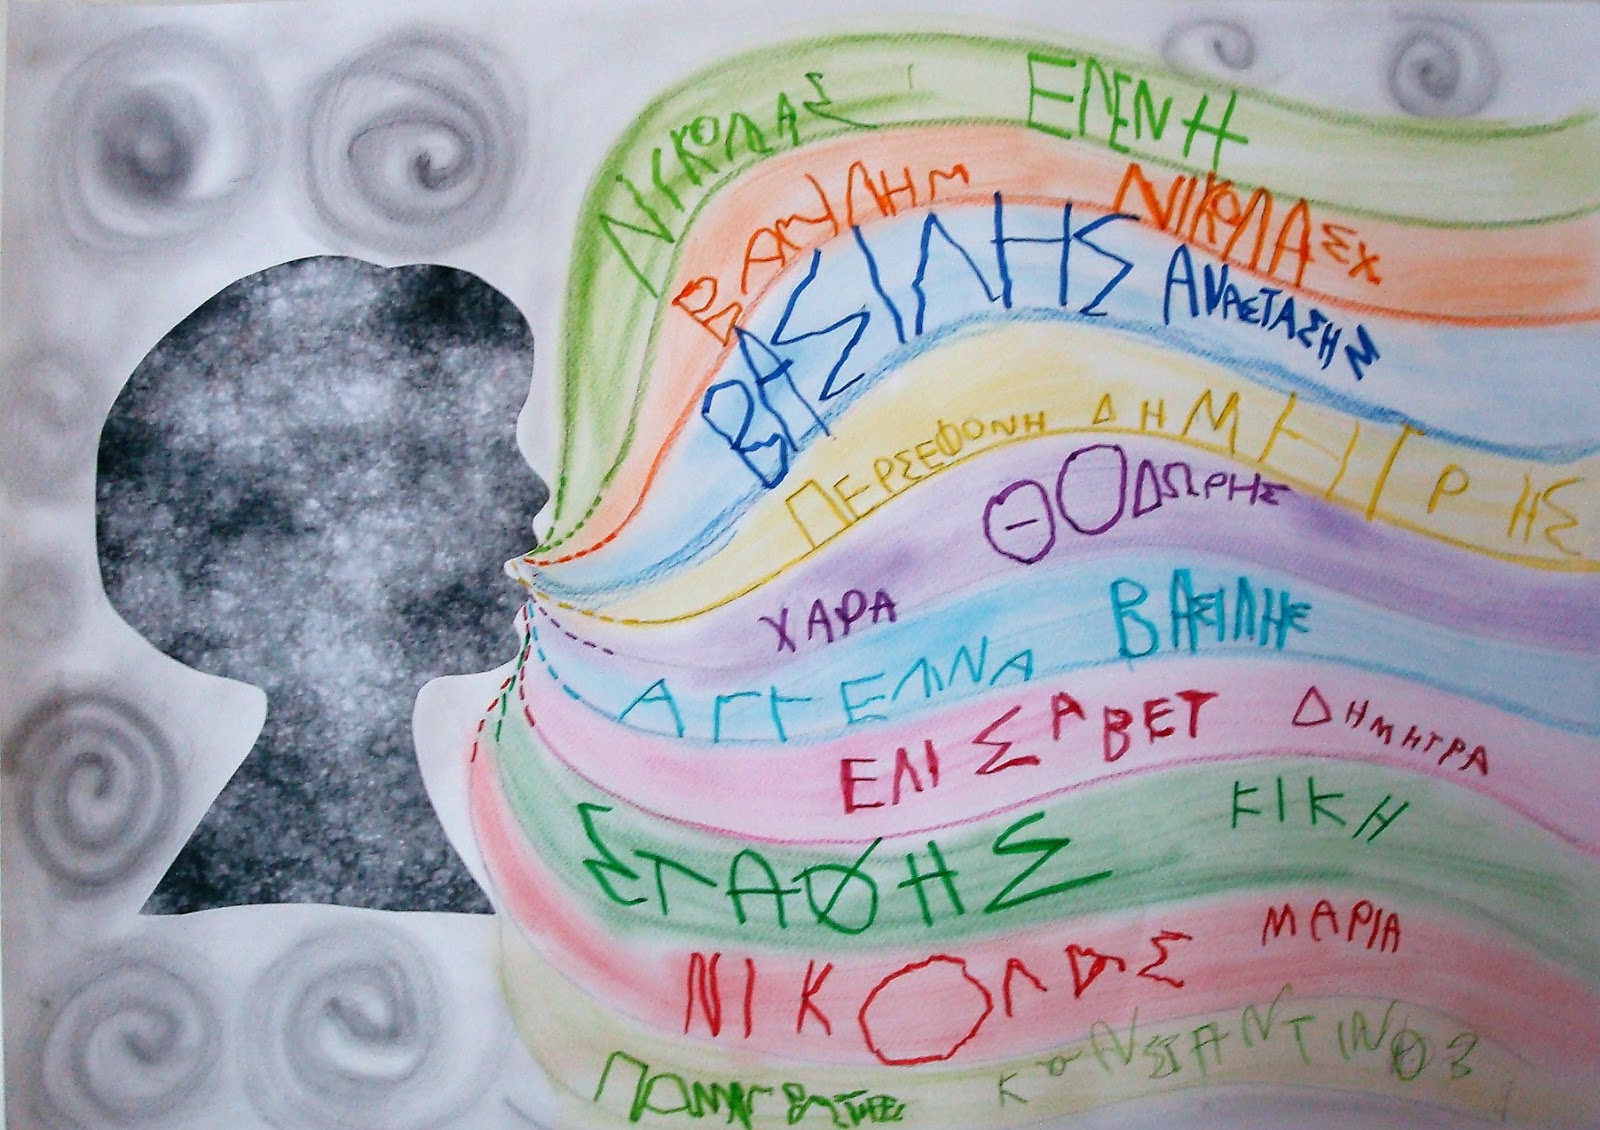 ΝΙΚΟΛΑΣ ΕΛΕΝΗ
ΝΙΚΟΛΑΣΧ
ΒΑΣΙΛΗΣ ΑΝΑΣΤΑΣΗΣ
ΠΕΡΣΕΦΟΝΗ ΔΗΜΗΤΡΗΣ
ΧΑΡΑ ΘΟΔΩΡΗΣ
ΑΓΓΕΛΙΝΑ ΒΑΣΙΛΗΣ
ΕΛΙΣΑΒΕΤ ΔΗΜΗΤΡΑ
ΣΤΑΘΗΣ ΚΙΚΗ
ΝΙΚΟΛΑΣ ΜΑΡΙΑ
ΚΟΝΣΤΑΝΤΙΝΟΣ